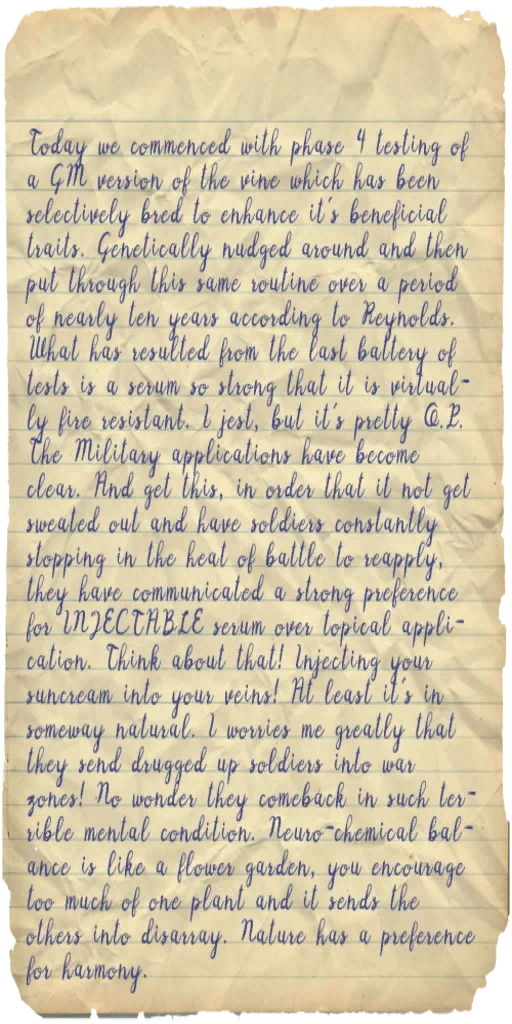 Today we commenced with phase 4 testing of
a GM version of the vine which has been
selectively bred to enhance it's beneficial
traits. Genetically nudged around and then
put through this same routine over a period
of nearly ten years according to Reynolds.
What has resulted from the last battery of
tests is a serum so strong that it is virtual-
ly fire resistant. I jest, but it's pretty O.P.
The Military applications have become
clear. And get this, in order that it not get
sweated out and have soldiers constantly
stopping in the heat of battle to reapply,
they have communicated a strong preference
for INJECTABLE serum over topical appli-
cation. Think about that! Injecting your
suncream into your veins! At least it's in
someway natural. I worries me greatly that
they send drugged up soldiers into war
zones! No wonder they comeback in such ter-
rible mental condition. Neuro-chemical bal-
ance is like a flower garden, you encourage
too much of one plant and it sends the
others into disarray. Nature has a preference
for harmony.